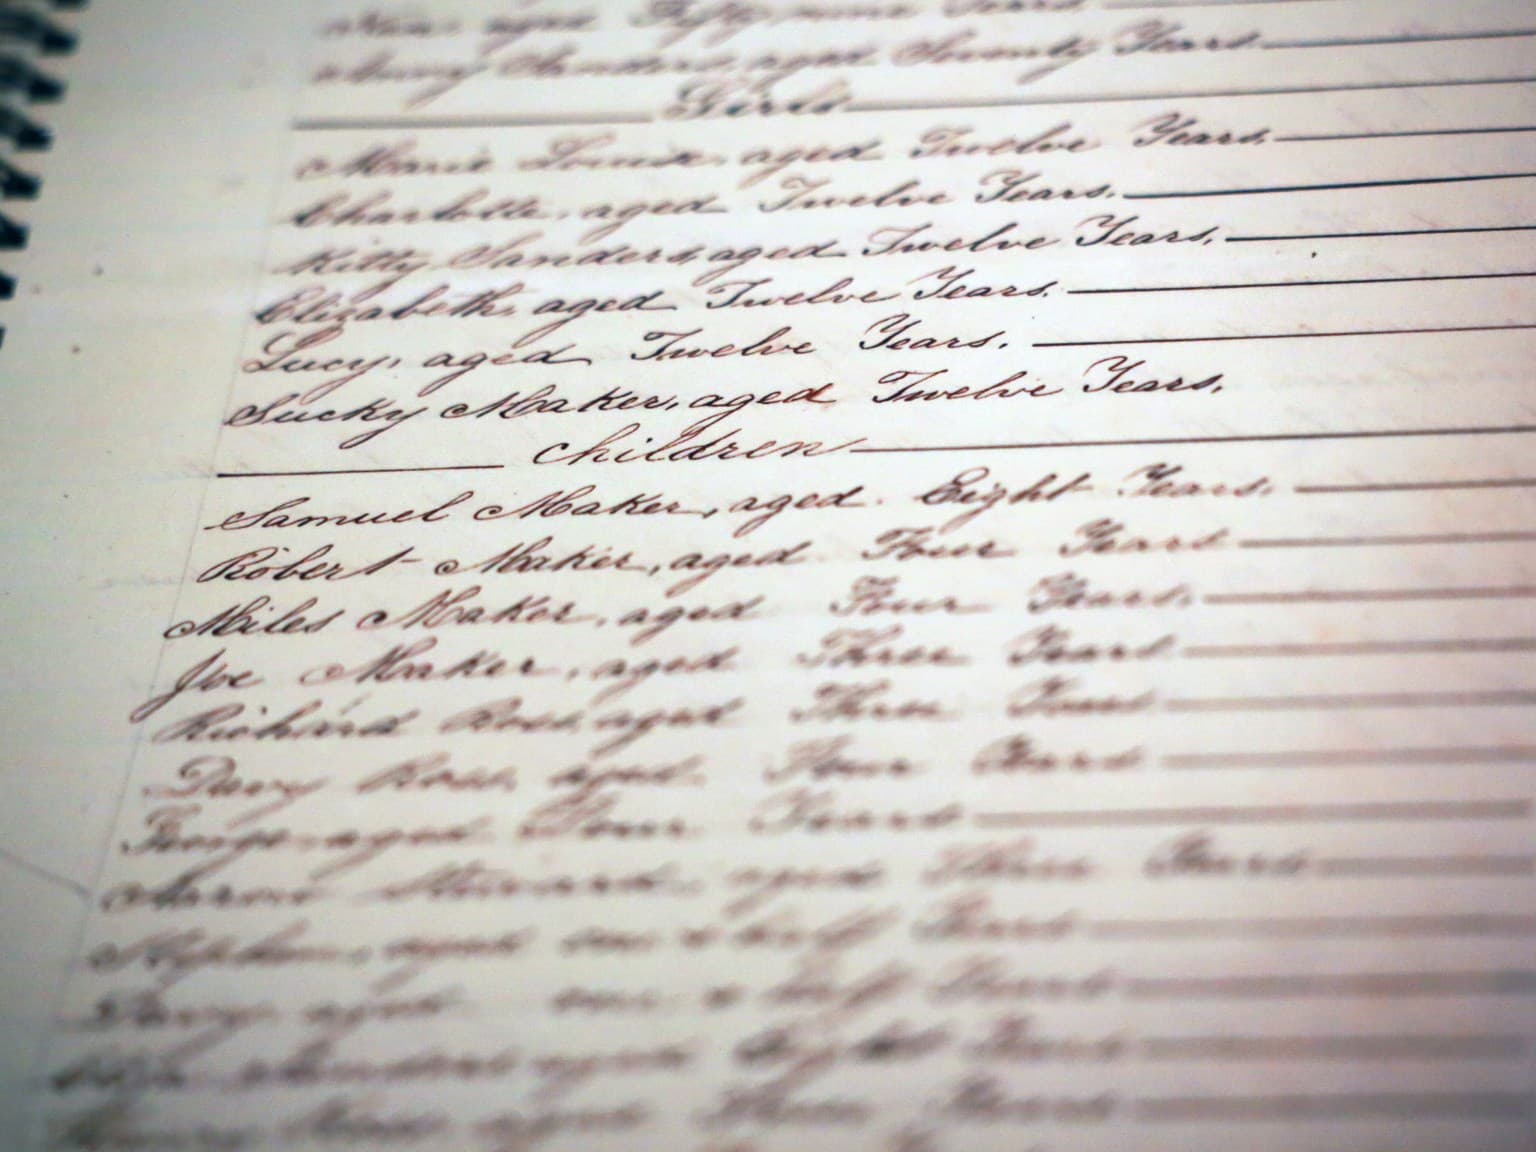 aged Fifty nine Years
Sanders, aged Seventy Years.
Girls
Marie Louise, aged Twelve Years.
Charlotte, aged Twelve Years.
Kitty Sanders, aged Twelve Years.
Elizabeth, aged Twelve Years.
Lucy, aged Twelve Years.
Sucky Maker, aged Twelve Years.
Children
Samuel Maker, aged Eight Years.
Robert Maker, aged Four Years
Miles Maker, aged Four Years.
Joe Maker, aged Three Years
Richard Ross, aged Three Years
Davy Ross, aged Four Years
George aged Four Years
Aaron Steward, aged Three Years
Stephen, aged one & half Years
Davy aged one & half Years
Sanders aged Eight Years
aged Three Years